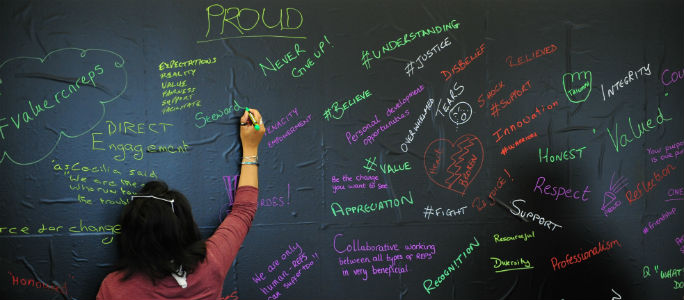 PROUD
#valuercnreps
EXPECTATIONS
REALITY
VALUE
FAIRNESS
SUPPORT
FACILITATE
NEVER
GIVE UP!
#UNDERSTANDING
#JUSTICE
DISBELIEF
RELIEVED
INTEGRITY
Steward
TENACITY
EMPOWERMENT
#BELIEVE
Personal development
opportunities
OVERWHELMED
TEARS
SHOCK
#SUPPORT
Innovation
"Valued"
DIRECT
Engagement
"as Cecilia said
"We are the
who run
the
#VALUE
Be the change
you want to see
APPRECIATION
Heart
BROKEN
#FIGHT
HONEST
Respect
PROUD
Reflection
Your purpose
ONE
#friendship
SUPPORT
for change
"Honoured
We are only
human-REPS
SUPPORT too!!
Collaborative working
between all types of REPS
is very beneficial.
RECOGNITION
Resourceful
Diversity
Professionalism
Q "What
do